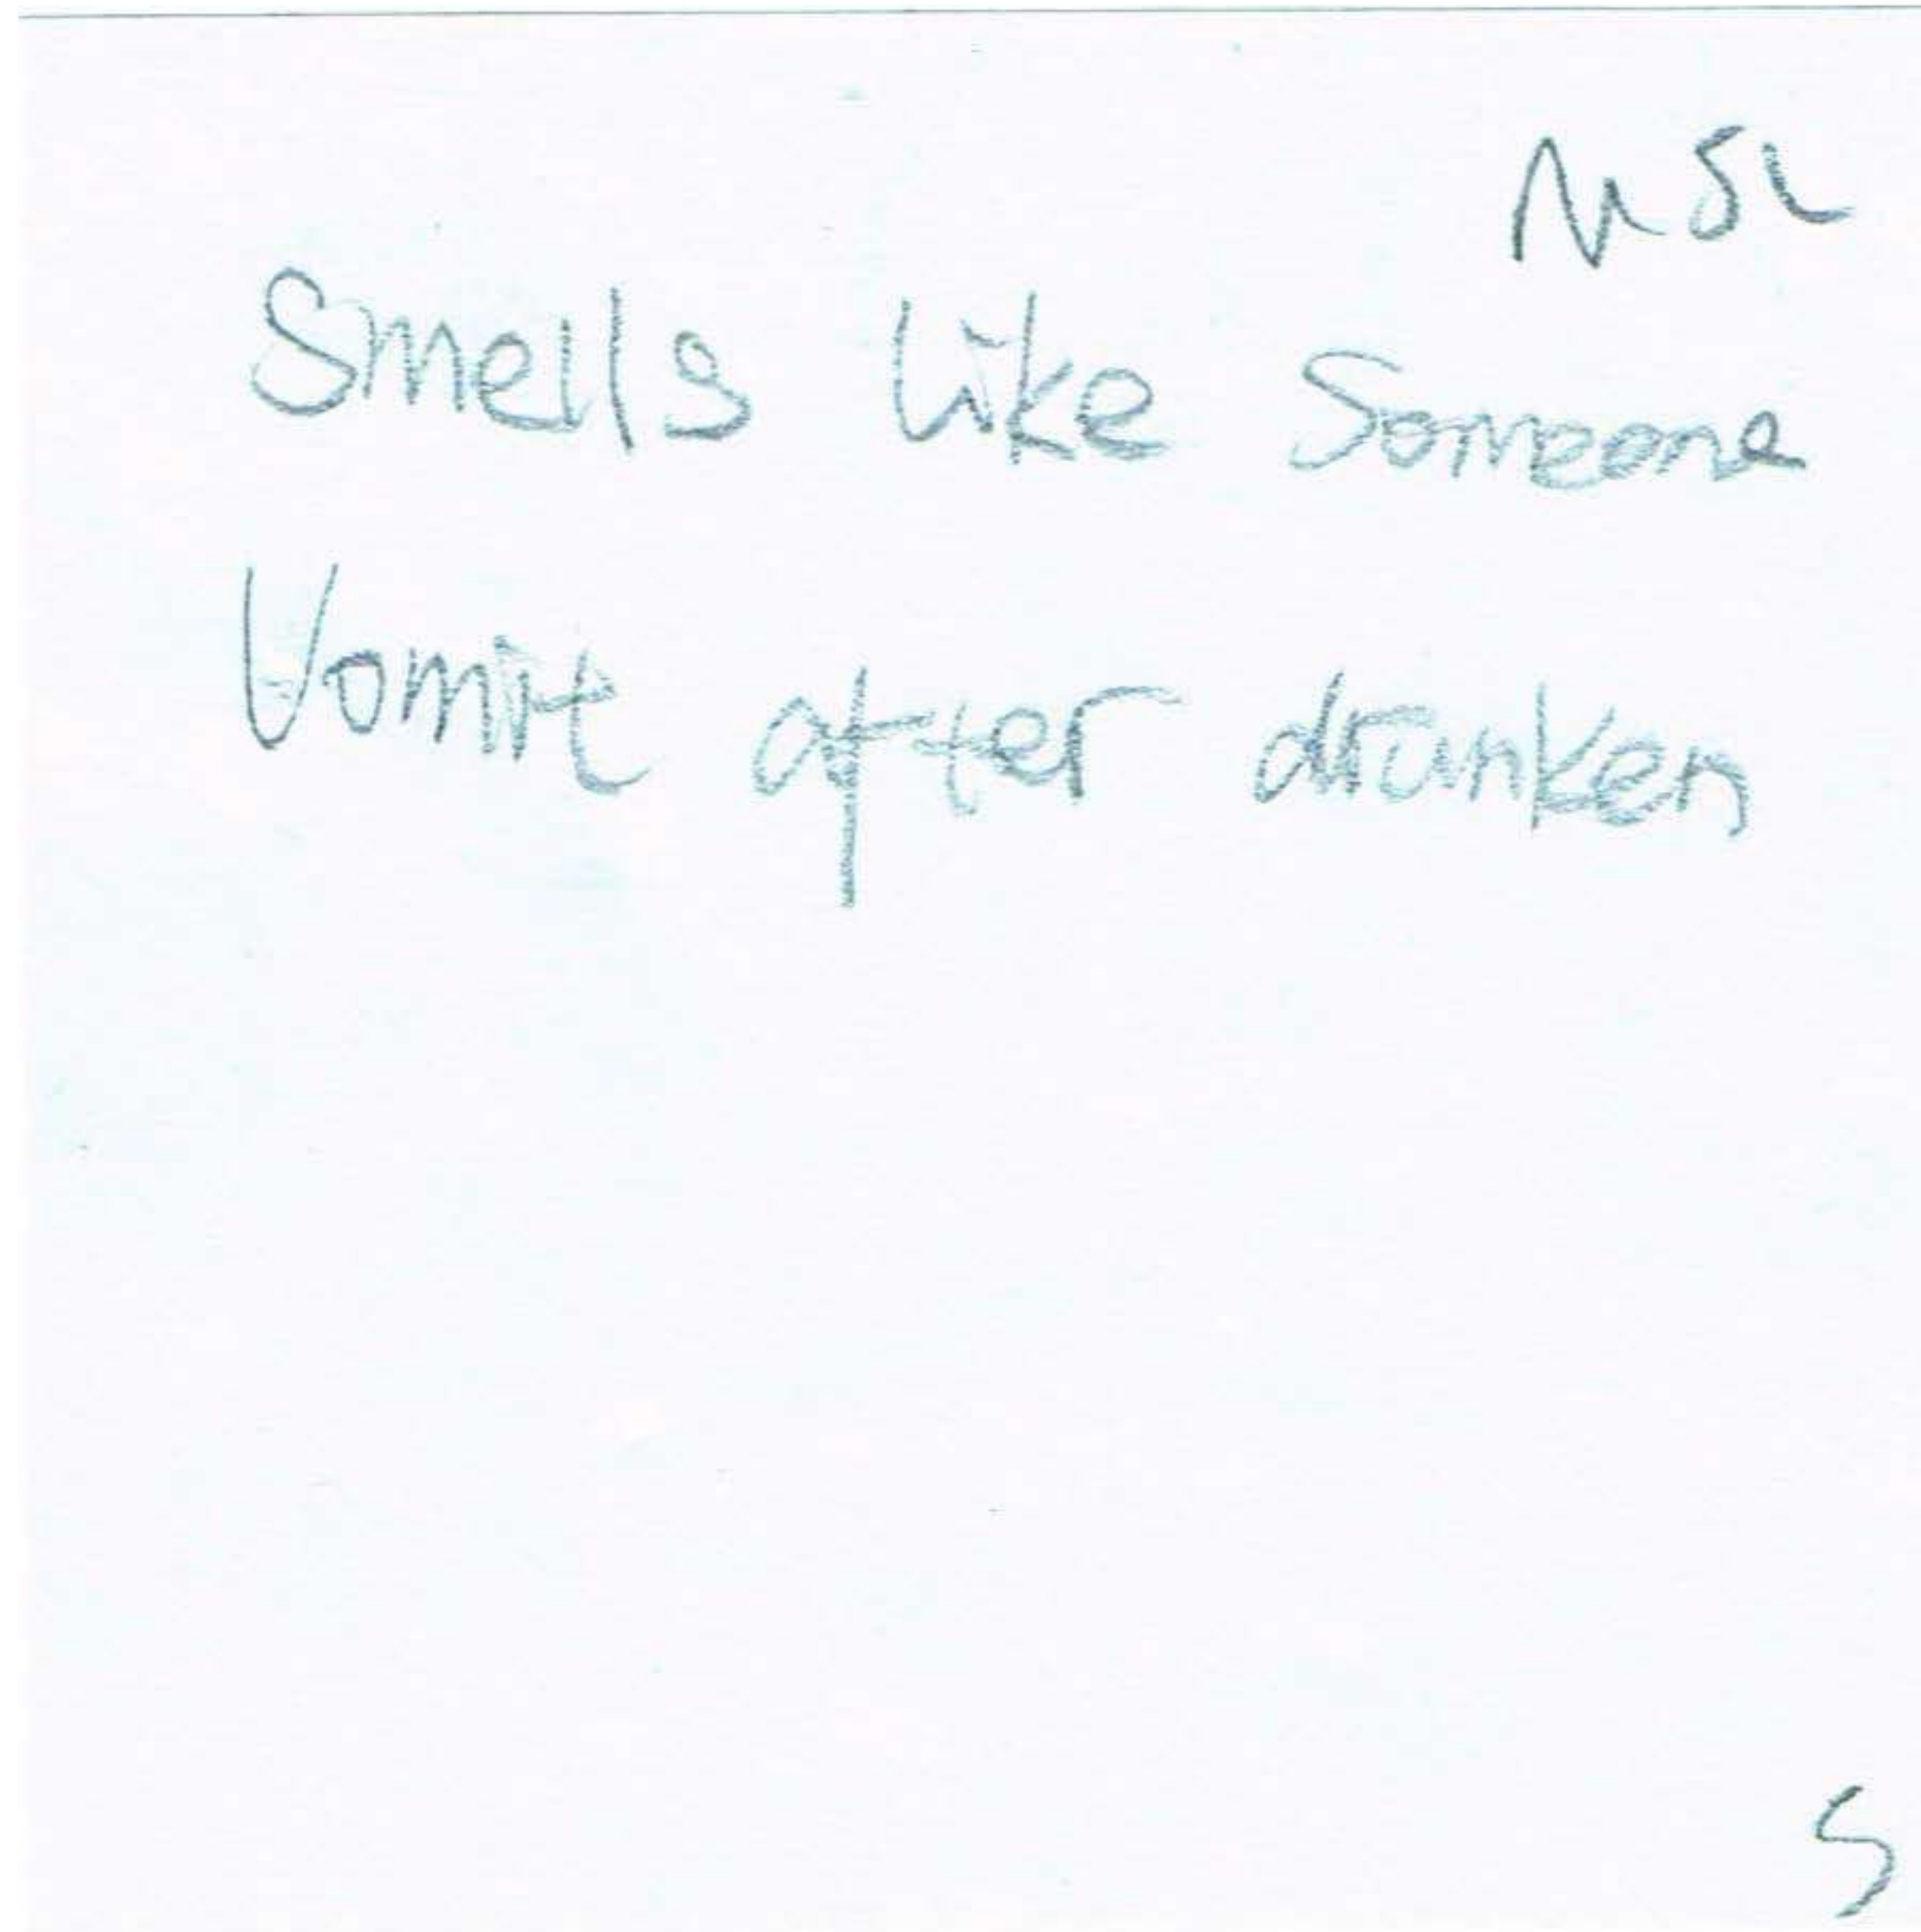 MSL
Smells like Someone
Vomit after drunken
S